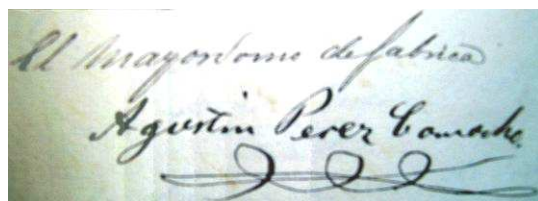 El Mayordomo de fabrica
Agustin Perez Camacho.